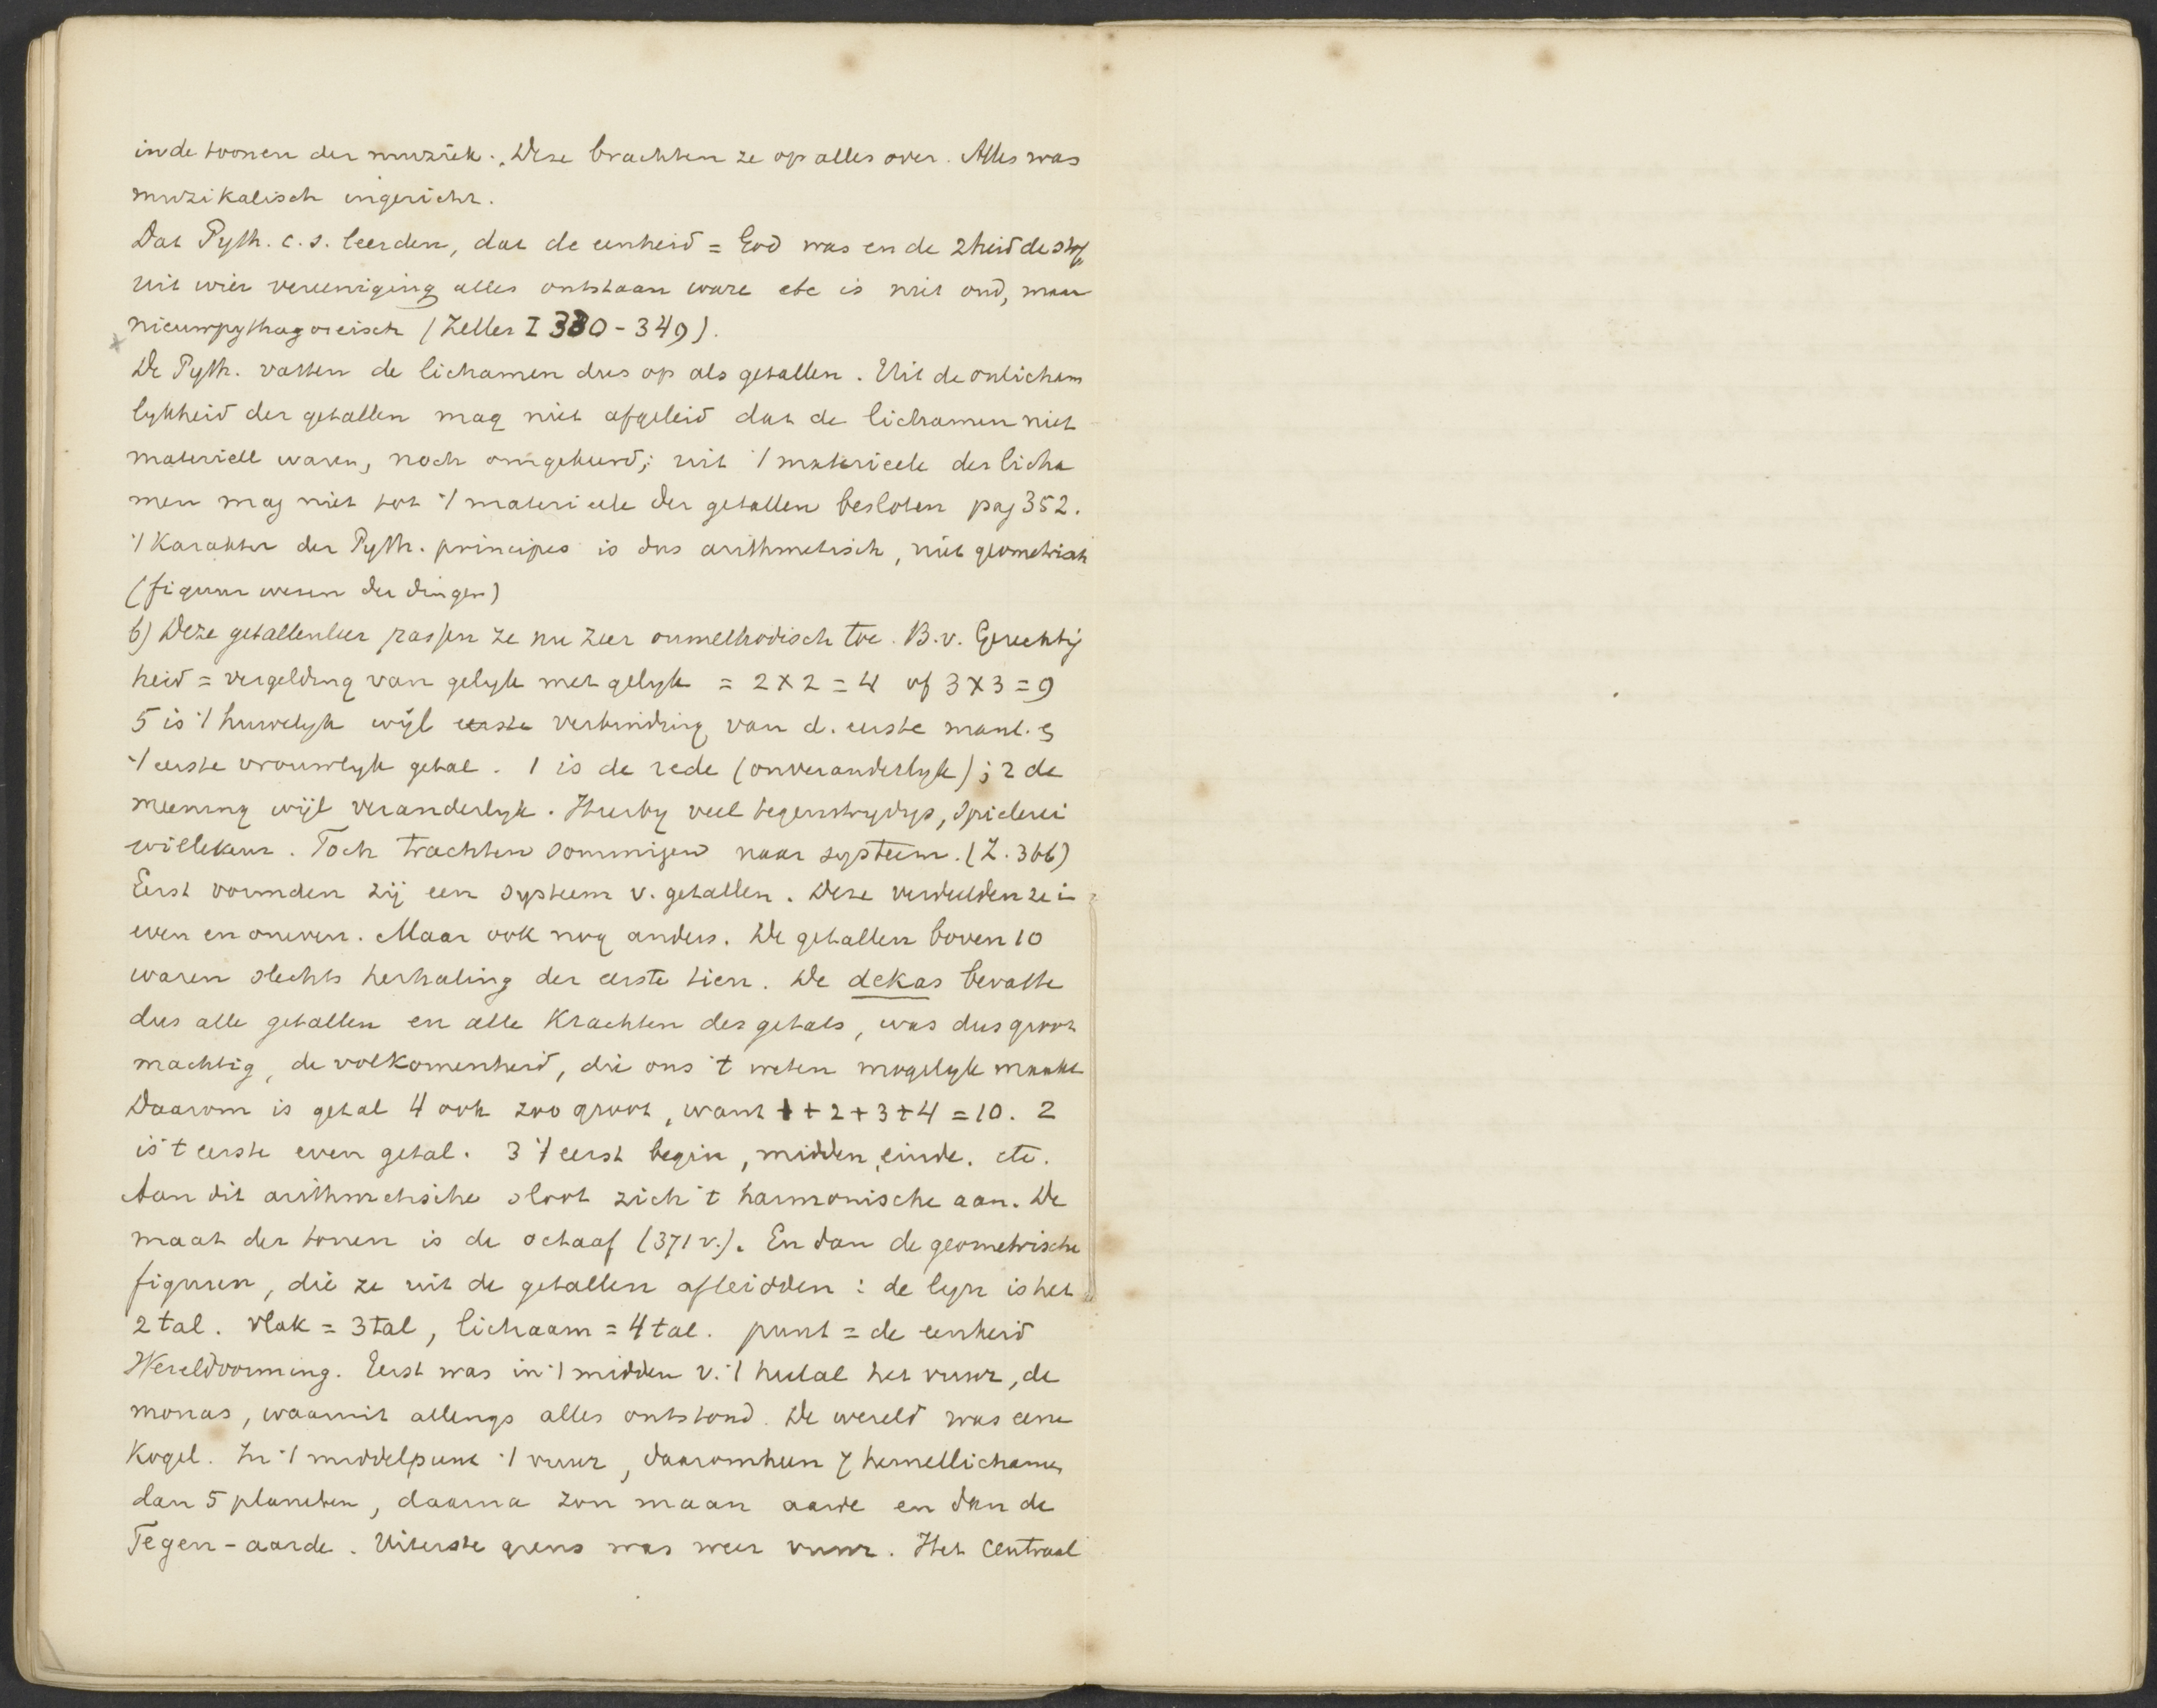 in de toonen der muziek. Deze brachten ze op alles over. Alles was
muzikalisch ingericht.
Dat Pyth. c.s. leerden, dat de eenheid = God was en de 2heid de stof
uit wier vereeniging alles ontstaan ware etc is niet oud, maar
nieuwpythagoreisch (Zeller I 380-349).
De Pyth. vatten de lichamen dus op als getallen. Uit de onlicham
lykheid der getallen mag niet afgeleid dat de lichamen niet
materieel waren, noch omgekeerd; uit 't materieele der licha
men mag niet tot 't materieele der getallen besloten pag 352.
't Karakter der Pyth. principes is dus arithmetisch, niet geometrisch
(figuur wezen der dingen)
b) Deze getallenleer passen ze nu zeer onmethodisch toe. B.v. Gerechtig
heid = vergelding van gelyk met gelyk = 2 x 2 = 4 of 3 x 3 = 9
5 is 't huwelyk wijl eerste verbinding van d. eerste manl. &
't eerste vrouwlyk getal. 1 is de rede (onveranderlyk); 2 de
meening wijl veranderlyk. Hierby veel tegenstrydigs, Spielerei
willekeur. Toch trachten sommigen naar systeem. (Z. 366)
Eerst vormden zij een systeem v. getallen. Deze verdeelden ze in
even en oneven. Maar ook nog anders. De getallen boven 10
waren slechts herhaling der eerste tien. De dekas bevatte
dus alle getallen en alle Krachten des getals, was dus groot
machtig, de volkomenheid, die ons 't weten mogelyk maakt
Daarom is getal 4 ook zoo groot, want 1 + 2 + 3 + 4 = 10. 2
is 't eerste even getal. 3 't eerst begin, midden, einde. etc.
Aan dit arithmetische sloot zich 't harmonische aan. De
maat der tonen is de octaaf (371 v.). En dan de geometrische
figuren, die ze uit de getallen afleidden : de lyn is het
2 tal. vlak = 3tal, lichaam = 4 tal. punt = de eenheid
Wereldvorming. Eerst was in 't midden v. 't heelal het vuur, de
monas, waaruit allengs alles ontstond. De wereld was eene
Kogel. In 't middelpunt 't vuur, daaromheen 7 hemellichamen
dan 5 planeten, daarna zon maan aarde en dan de
Tegen-aarde. Uiterste grens was weer vuur. Het centraal